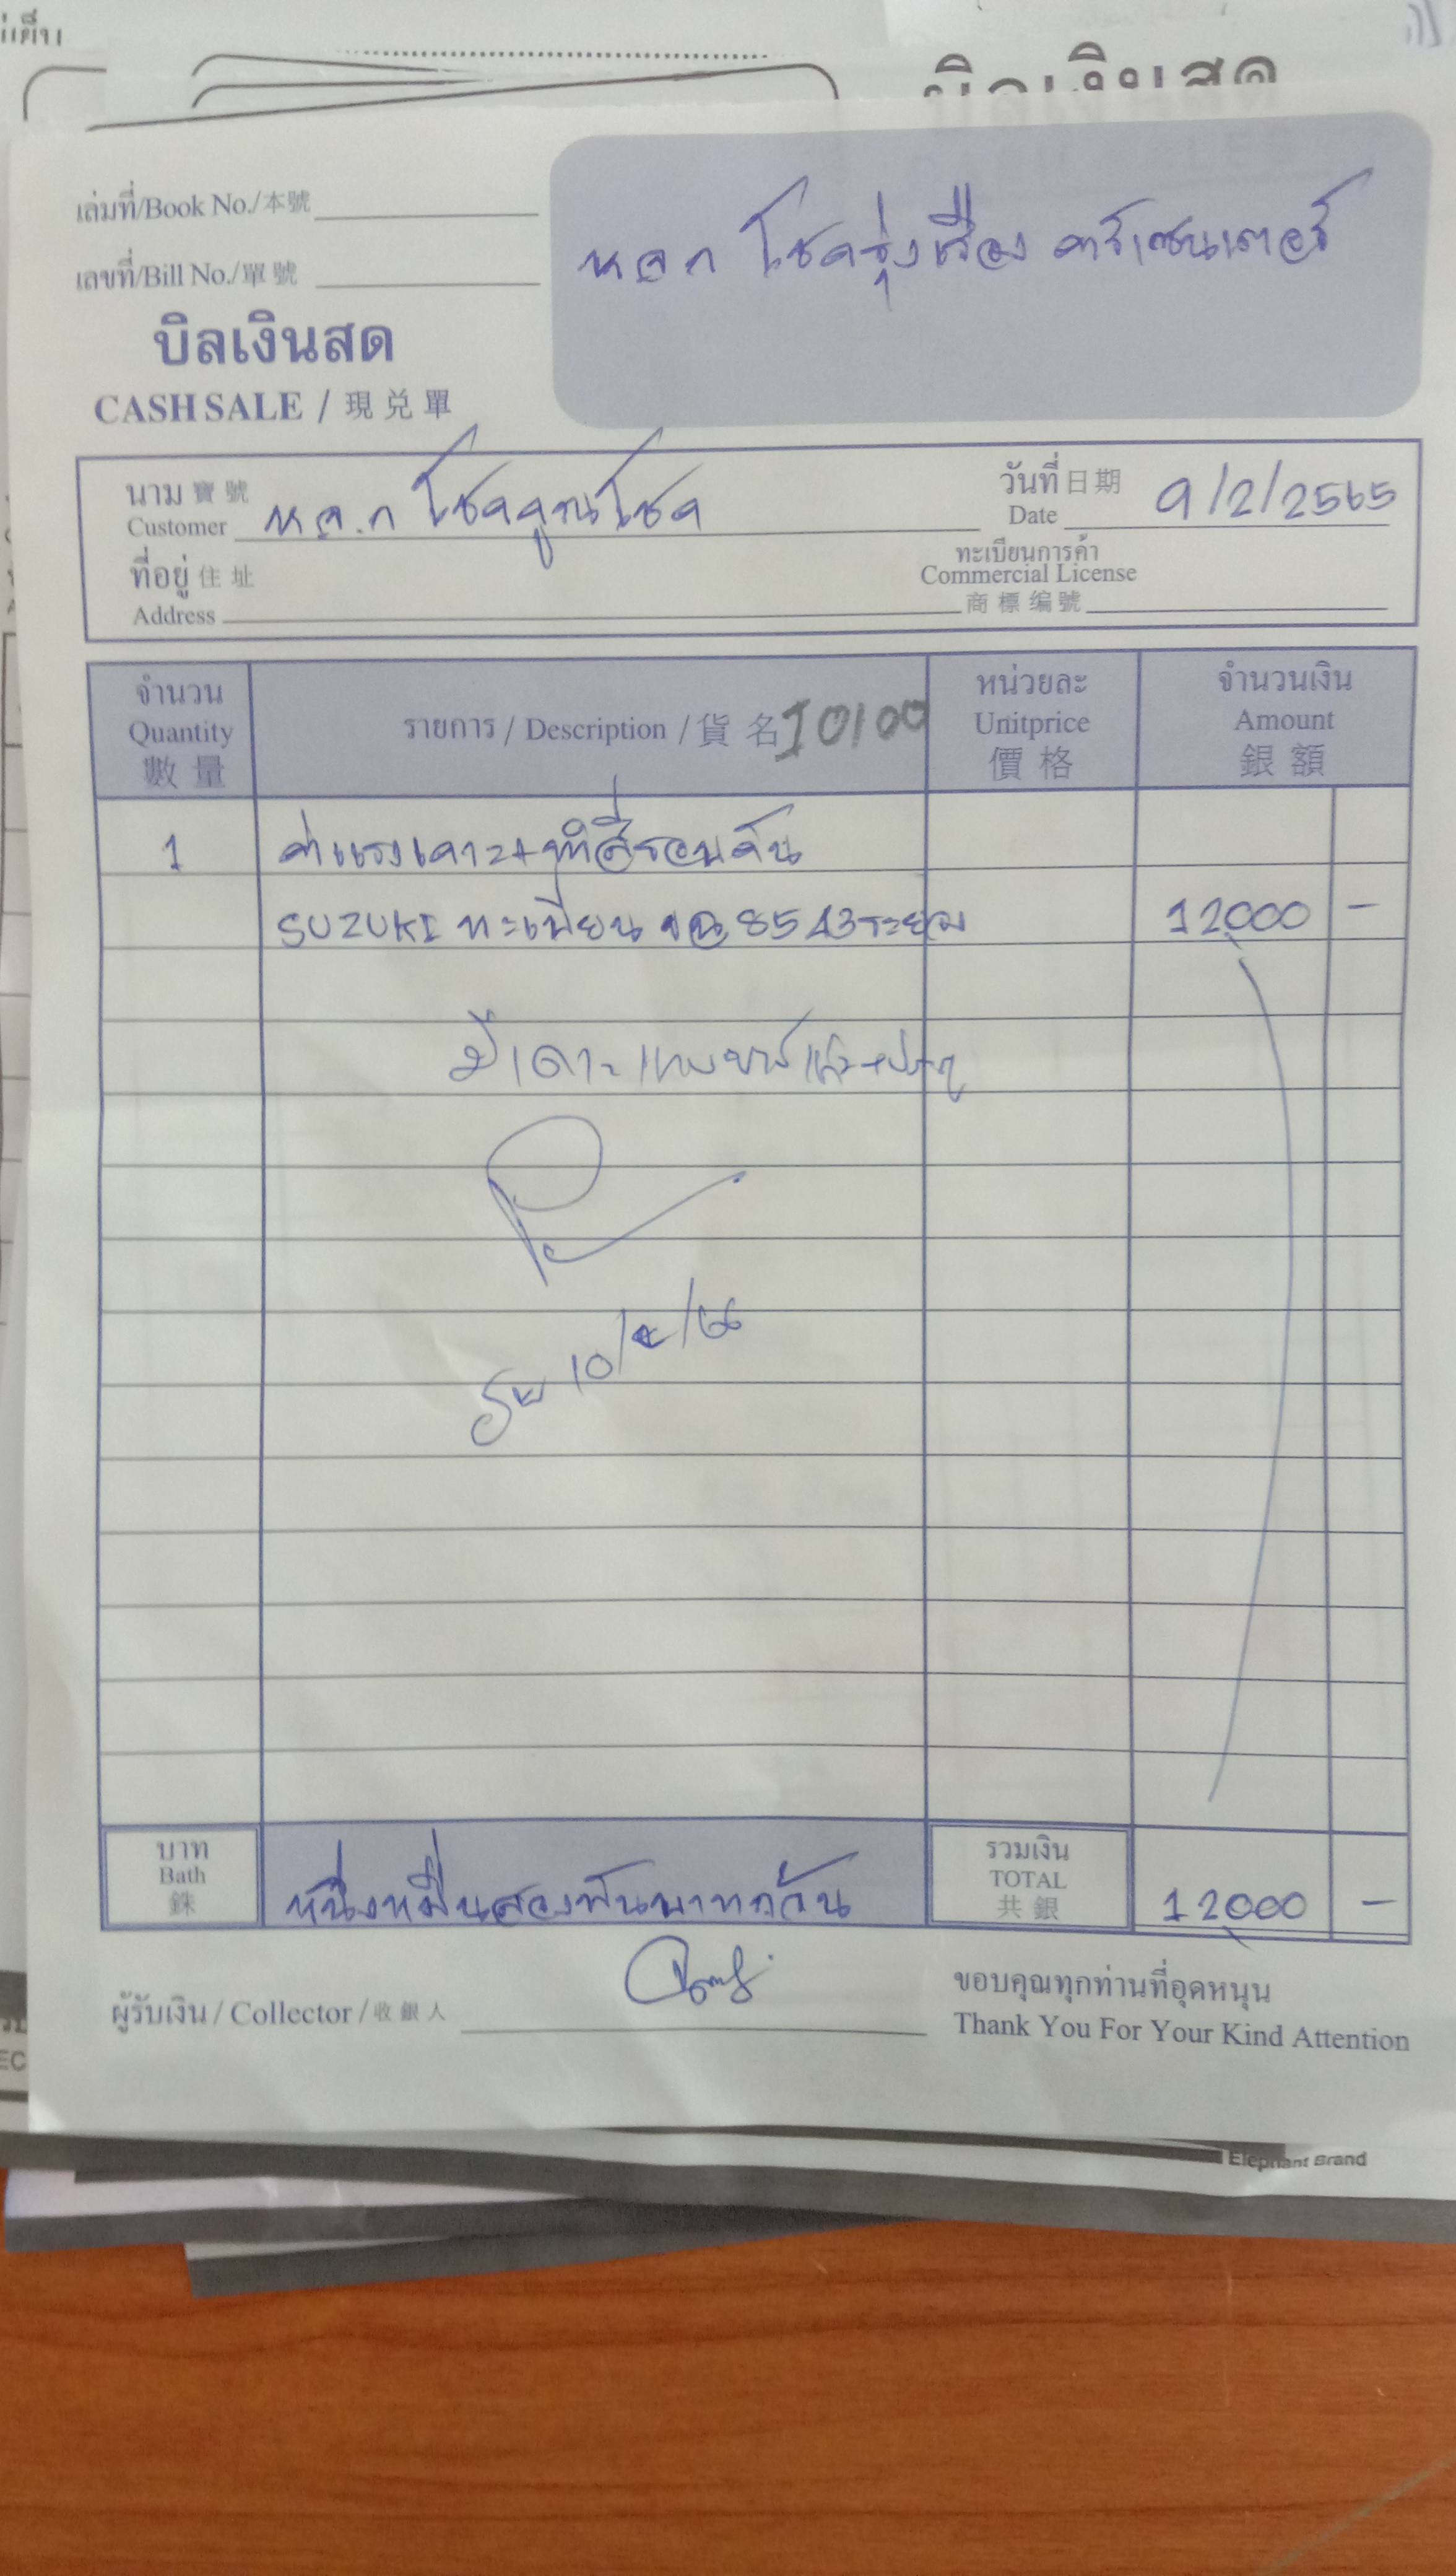 บิลเงินสด
เล่มที่/Book No./本號
เลขที่/Bill No./單號
บิลเงินสด
CASH SALE / 現兑單
หจก โชครุ่งเรือง คาร์เซนเตอร์
นาม 寶號
Customer หจ.ก โชคคูณโชค
วันที่ 日期
Date 9/2/2565
ที่อยู่ 住址
Address
ทะเบียนการค้า
Commercial License
商標编號
จำนวน
Quantity
數量
รายการ / Description / 貨名 I0100
หน่วยละ
Unitprice
價格
จำนวนเงิน
Amount
銀額
1 ค่าแรงเคาะ+ทำสีรอบคัน
SUZUKI ทะเบียน 8543 ระยอง 12,000 –
มีเคาะ
10/
บาท
Bath
銖
หนึ่งหมื่นสองพันบาทถ้วน
รวมเงิน
TOTAL
共銀
12,000 –
ผู้รับเงิน / Collector / 收銀人
ขอบคุณทุกท่านที่อุดหนุน
Thank You For Your Kind Attention
Elephant Brand